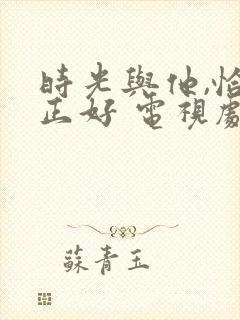 時光與他,恰
正好 電視劇
蘇青玉